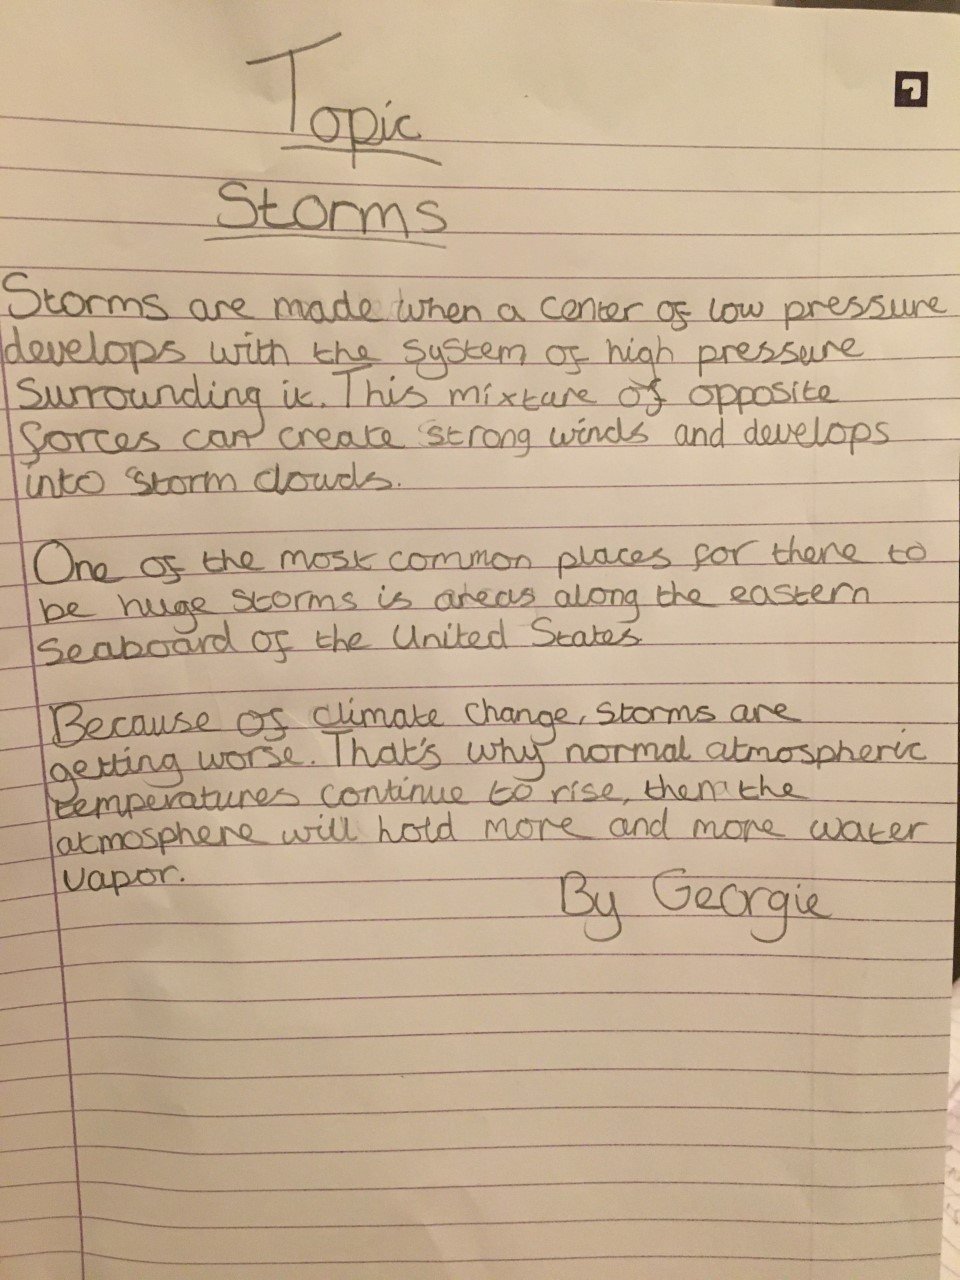 Topic
Storms
Storms are made when a center of low pressure
develops with the system of high pressure
surrounding it. This mixture of opposite
forces can create strong winds and develops
into storm clouds.
One of the most common places for there to
be huge storms is areas along the eastern
seaboard of the United States.
Because of climate change, storms are
getting worse. That's why normal atmospheric
temperatures continue to rise, then the
atmosphere will hold more and more water
vapor.
By Georgie